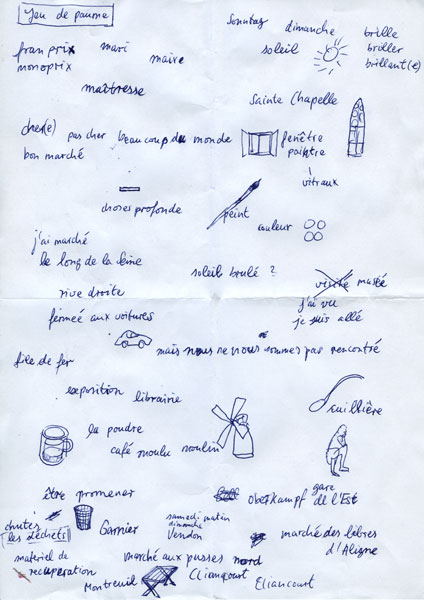 Jeu de paume
Sonntag dimanche brille
franprix mari soleil briller
monoprix maire brillant(e)
maîtresse
Sainte Chapelle
cher(e) pas cher beaucoup du monde fenêtre
bon marché peintre
vitraux
choses profonde peint
couleur
j'ai marché
le long de la Seine
soleil brulé ? visite musée
rive droite j'ai vu
fermeé aux voitures je suis allé
mais nous ne nous sommes pas rencontré
file de fer
exposition librairie cuillière
la poudre
café moulu moulin
être promener Oberkampf gare
de l'Est
chutes samedi matin
les déchets Garnier dimanche
Vendon marché des libres
d'Aligne
materiel de marché aux pusses nord
recuperation Cliancourt
Montreuil Eliancourt